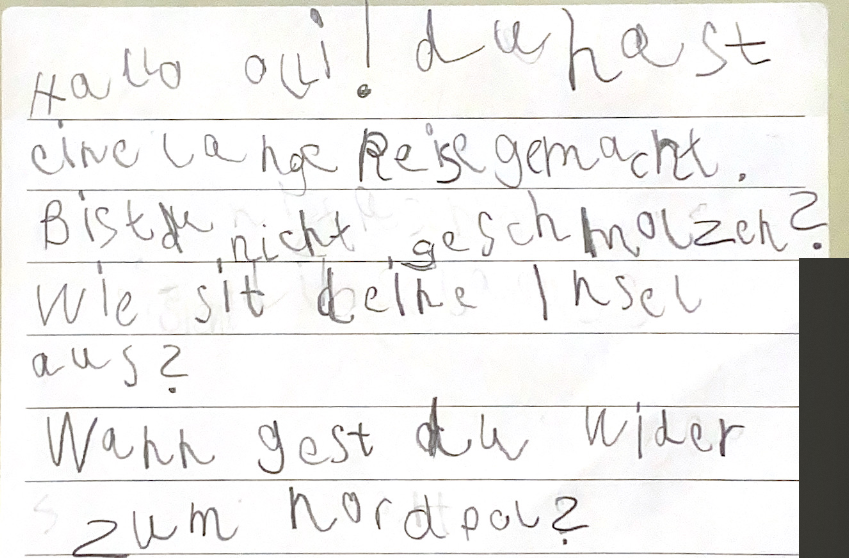 Hallo olli! du hast
eine lange Reise gemacht.
Bist du nicht geschmolzen?
Wie sit deine Insel
aus?
Wann gest du wider
zum nordpol?